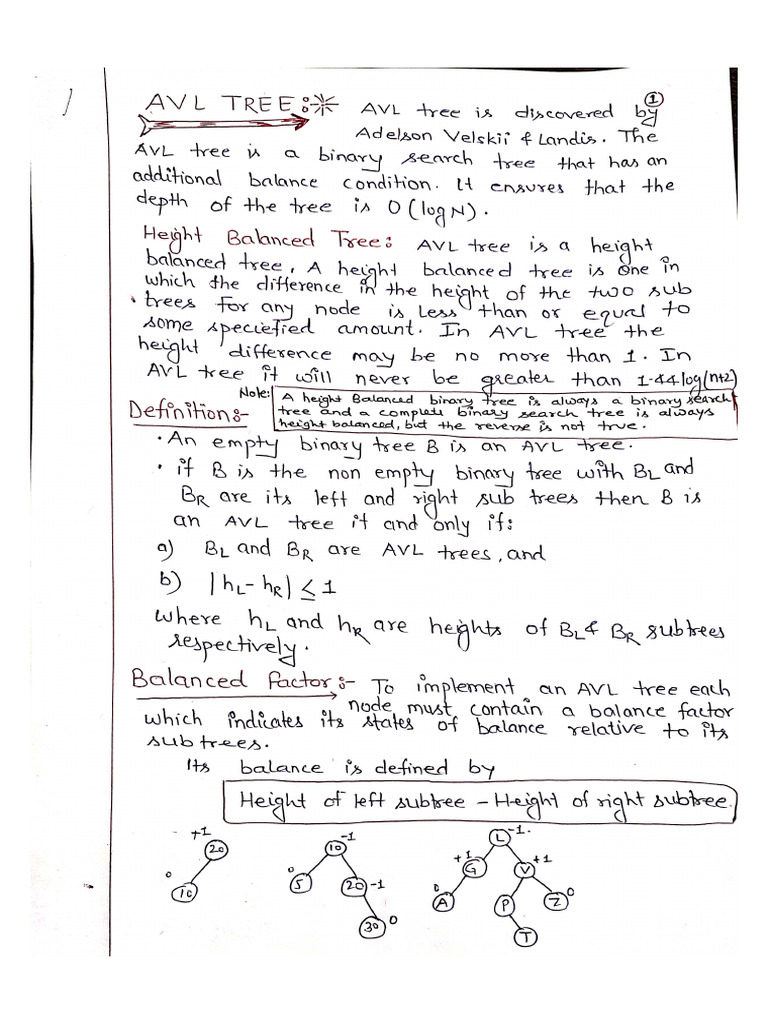 1
AVL TREE:- AVL tree is discovered by
Adelson Velskii & Landis. The
AVL tree is a binary search tree that has an
additional balance condition. It ensures that the
depth of the tree is O(log N).
Height Balanced Tree: AVL tree is a height
balanced tree. A height balanced tree is one in
which the difference in the height of the two sub
trees for any node is less than or equal to
some speciefied amount. In AVL tree the
height difference may be no more than 1. In
AVL tree it will never be greater than 1.44 log(n+2)
Note: A height Balanced binary tree is always a binary search
tree and a complete binary search tree is always
height balanced, but the reverse is not true.
Definition:-
• An empty binary tree B is an AVL tree.
• if B is the non empty binary tree with BL and
BR are its left and right sub trees then B is
an AVL tree if and only if:
a) BL and BR are AVL trees, and
b) |hL - hR| ≤ 1
where hL and hR are heights of BL & BR subtrees
respectively.
Balanced Factor:- To implement an AVL tree each
node must contain a balance factor
which indicates its states of balance relative to its
subtrees.
Its balance is defined by
Height of left subtree - Height of right subtree.
+1 20 0 10
-1 10 0 5 20 -1 30 0
L -1 +1 G V +1 0 A P Z 0 T